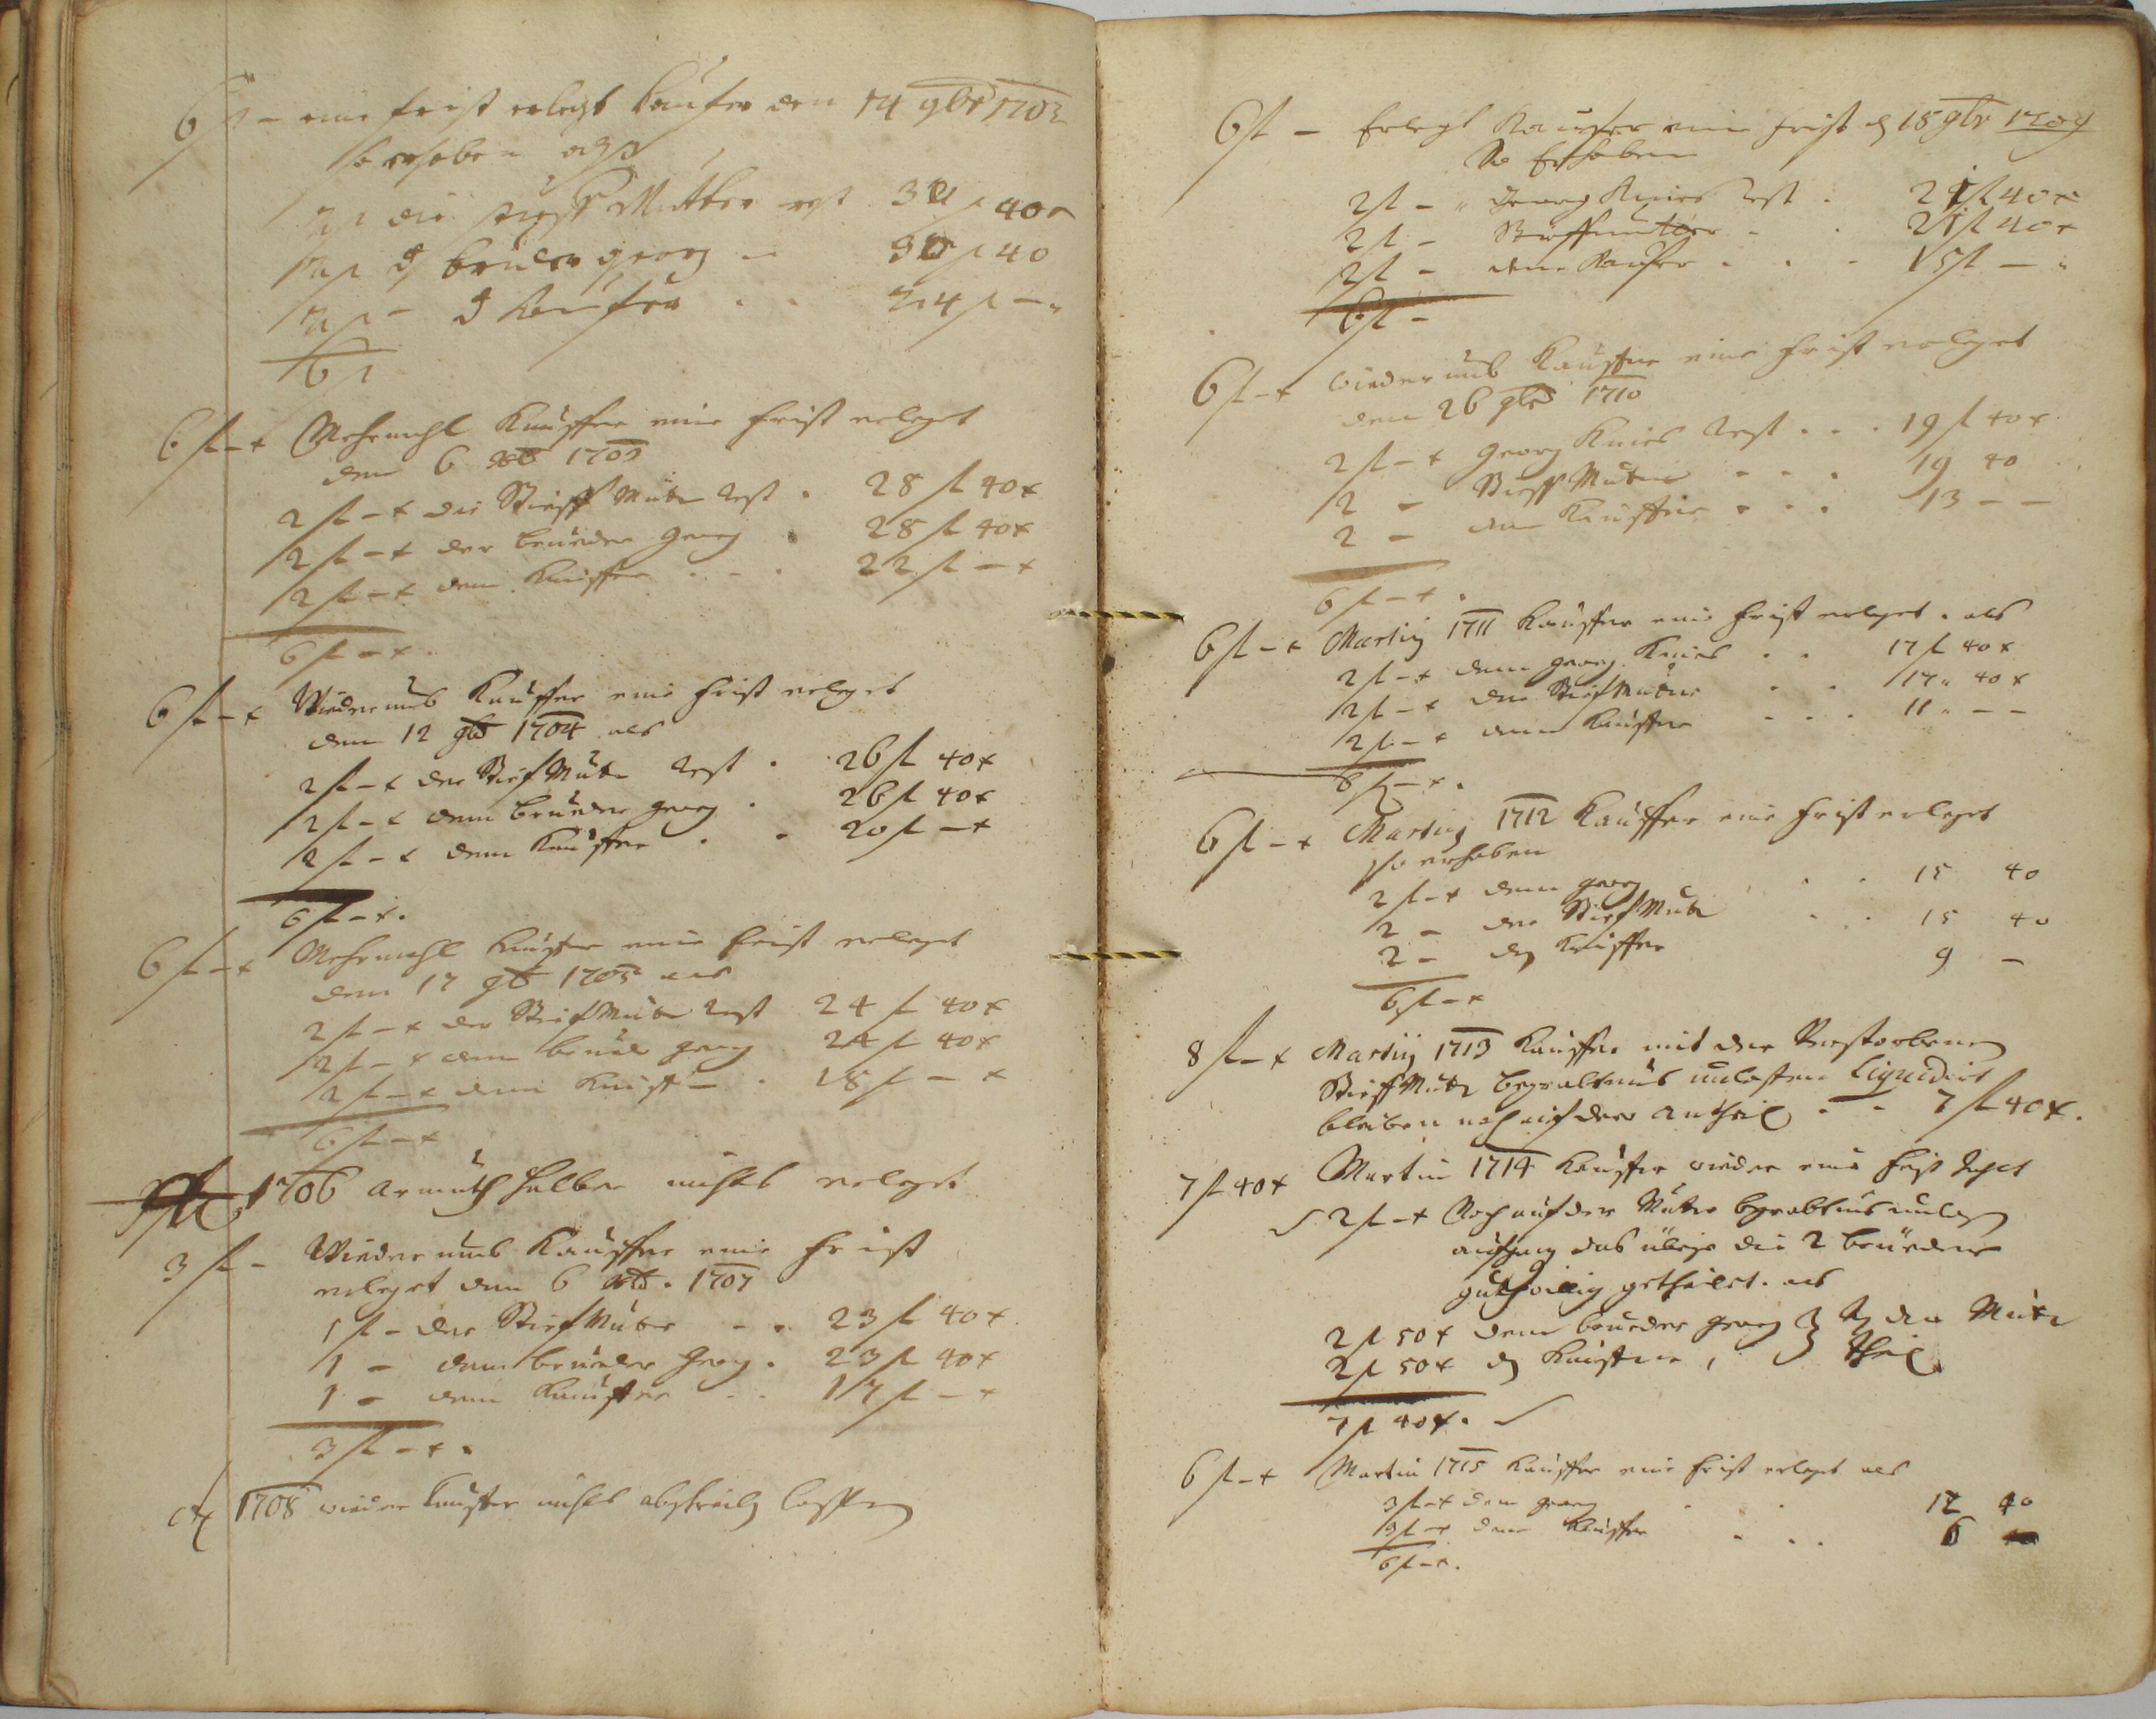 6 fl – eine frist erlegt Kaufer den 14 9br 1702
so erhoben als
2 fl die stieff Mutter rest 30 fl 40 x
2 fl d bruder georg – 30 fl 40
2 fl – d Kaufer . . 24 fl – "
6 fl
6 fl – x Mehrmahl Kauffer eine frist erleget
den 6 1703
2 fl – x die Stieff Muter Rest . 28 fl 40 x
2 fl – x der brueder Georg . 28 fl 40 x
2 fl – x dem Kauffer . . . 22 fl – x
6 fl – x .
6 fl – x Wiederumb Kauffer eine frist erleget
den 12 9br 1704 als
2 fl – x der Stief Muter Rest . 26 fl 40 x
2 fl – x dem brueder georg . 26 fl 40 x
2 fl – x dem Kauffer . . 20 fl – x
6 fl – x .
6 fl – x Mehrmahl Kauffer eine frist erleget
den 17 9br 1705 als
2 fl – x der Stief Muter Rest 24 fl 40 x
2 fl – x dem brued georg 24 fl 40 x
2 fl – x dem Kauff – . 18 fl – x
6 fl – x
1706 Armuth halber nichts erleget
3 fl – Wiederumb Kauffer eine frist
erleget den 6 . 1707
1 fl – der Stief Muter – . 23 fl 40 x
1 – dem brueder Georg . 23 fl 40 x
1 – dem Kauffer . . 17 fl – x
3 fl – x .
1708 wieder Kauffer nichts lassen
6 fl – Erlegt Kaufer eine frist d 15 9br 1709
So Erhoben
2 fl – " Georg Knies Rest . 21 fl 40 x
2 fl – Stieffmuter – . 21 fl 40 x
2 fl – dem Kaufer . . – 15 fl – "
6 fl –
6 fl – x wiederumb Kauffer eine frist erleget
den 26 9br 1710
2 fl – x Georg Knies Rest . . . 19 fl 40 x
2 – Stieff Muter – . . 19 40
2 – dem Kauffer . . . 13 – –
6 fl – x .
6 fl – x Martiny 1711 Kauffer eine frist erleget . als
2 fl – x dem georg Knies . . 17 fl 40 x
2 fl – x der Stief Muter . . 17 " 40 x
2 fl – x dem Kauffer . . . 11 " – –
6 fl – x .
6 fl – x Martiny 1712 Kauffer eine frist erleget
so erhoben
2 fl – x dem georg . . 15 40
2 – der Stief Muter . . 15 40
2 – d Kauffer 9 –
6 fl – x
8 fl – x Martiny 1713 Kauffer mit der Verstorbenen
Stieff Muter begrabnus unkosten Liquidirt
bleiben noch auf der antheil . – 7 fl 40 x .
7 fl 40 x Martini 1714 Kauffer wieder eine frist
2 fl – x Noch auf der Muter begrabnus
das übrige die 2 brueder
guthwillig getheilet . als
2 fl 50 x dem brueder georg } der Muter
2 fl 50 x d Kauffer , } theil
7 fl 40 x .
6 fl – x Martini 1715 Kauffer eine frist erleget als
3 fl – x dem georg . . 12 40
3 fl – x dem Kauffer . . . 6
6 fl – x .